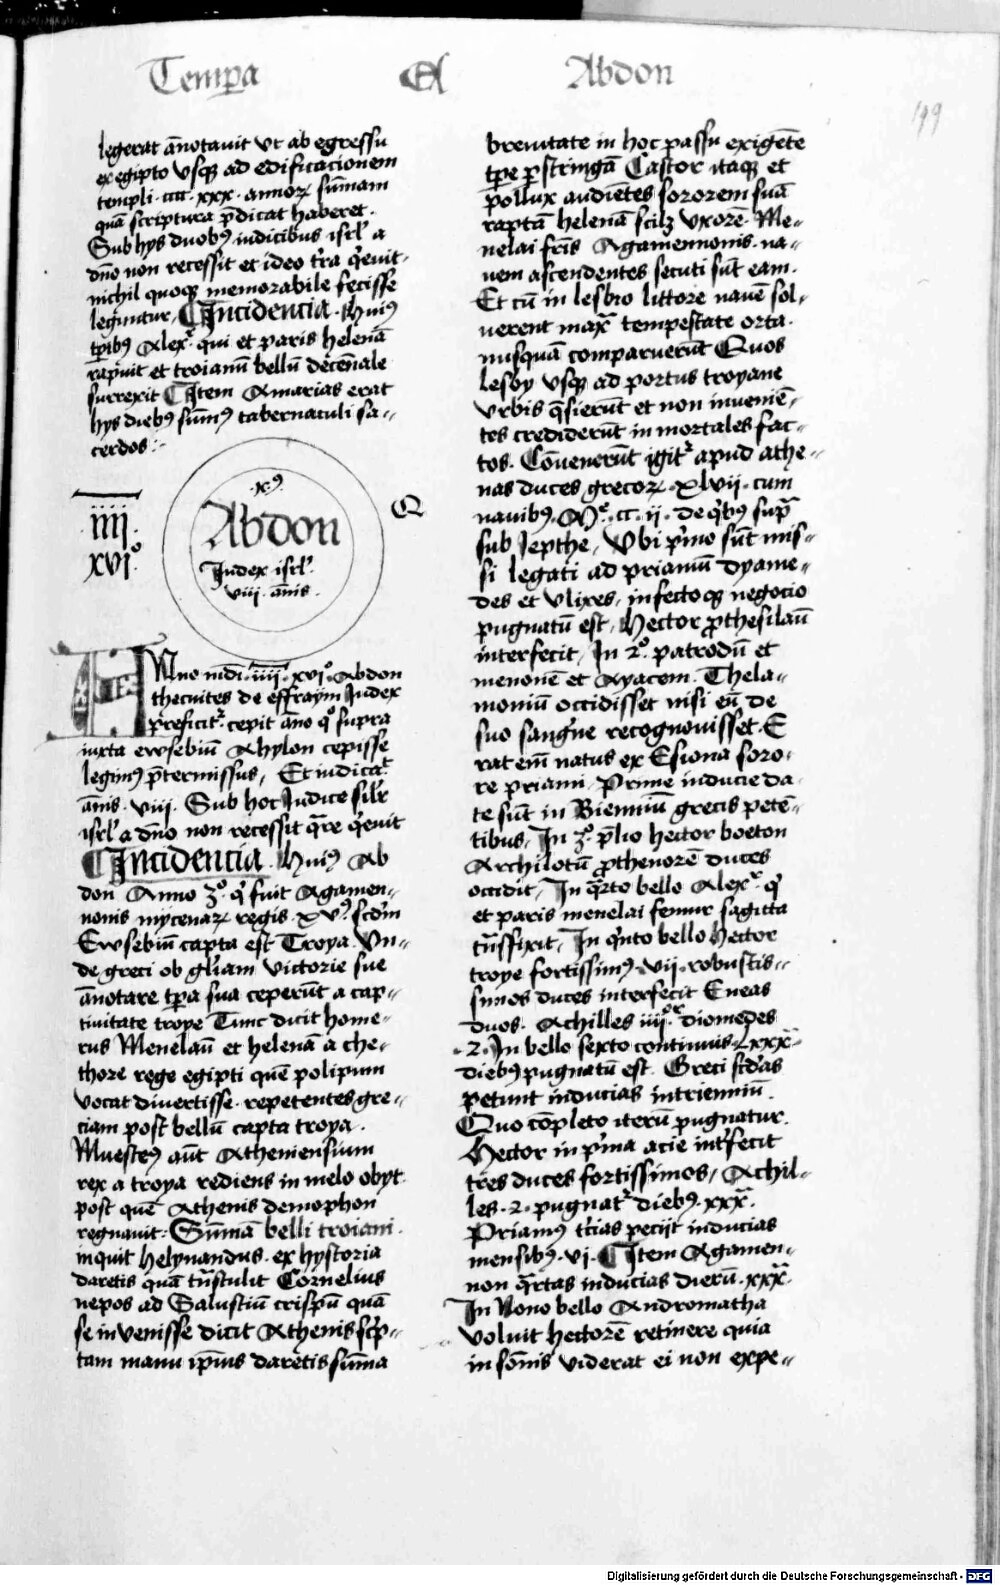 Temp̄a El Abdon
199
legerat ānotauit vt ab egressu
ex egipto vsqꝫ ad edificacionem
templi · cccc · xxx · annorꝝ sūmam
quā scriptura p̄dicat haberet ·
Sub hys duobꝰ iudicibus isrl' a
dn̄o non recessit et ideo tr̄a q̇euit ·
nichil quoqꝫ memorabile fecisse
leguntur / Incidencia · Huiꝰ
tp̄ibꝰ Alexr̄ · qui et paris helenā
rapuit et troianū bellū decēnale
surrexit Item Amarias erat
hys diebꝰ sūmꝰ tabernaculi sa-
cerdos :
iiii ·
xvi°
·x·9·
Abdon
Iudex · isrl'
viii · ānis ·
Anno mūdi · iiii · xvi° · Abdon
thecuites de effraym Iudex
p̄ficitr̄ · cepit an̄o q° supra
iuxta ewsebiū Ahylon cepisse
legimꝰ p̄termissus / Et iudicat
ānis · viii · Sub hoc Iudice silr̄
isrl' a dn̄o non recessit q̄re q̇euit
Incidencia · Huiꝰ Ab
don Anno 3° · q̇ fuit Agamen-
nonis mycenarꝝ regis · xv° · scd̄m
Ewsebiū capta est Troya · Vn-
de greci ob glīam victorie sue
ānotare tp̄a sua ceperūt a cap-
tiuitate troye Tunc dicit home-
rus Menelaū et helenā a che-
thore rege egipti quē polipum
vocat diuertisse · repetentes gre-
ciam post bellū capta troya ·
Muestꝰ aūt Atheniensium
rex a troya rediens in melo obyt
post quē Athenis demophon
regnauit : Sūmā belli troiani ·
inquit helynandus · ex hystoria
daretis quā trāstulit Cornelius
nepos ad Salustiū crispū quā
se in venisse dicit Athenis scp̄-
tam manu ip̄ius daretis sūma
breuitate in hoc passu exigēte
tp̄e p̄stringā Castor itaqꝫ et
pollux audiētes sororem suā
raptā helenā scilꝫ vxorē · Me-
nelai fr̄is Agamennonis · na-
uem ascendentes secuti sūt eam ·
Et cū in lesbio littore nauē sol-
uerent maxr̄ tempestate orta ·
nusquā comparuerūt Quos
lesby vsqꝫ ad portus troyane
vrbis q̄sierūt et non inueniē-
tes crediderūt in mortales fac-
tos · Cōuenerūt igitr̄ apud athe-
nas duces grecorꝝ · xlvii · cum
nauibꝰ · M° · cc · ii · de q̇bꝰ supra
sub Iepthe / Vbi ṗmo sūt mis-
si legati ad priamū dyame-
des et vlixes / infectoqꝫ negocio
pugnatū est / Hector p̄thesilaū
interfecit / In 2° · patrodū et
menonē et Ayacem · Thela-
moniū occidisset nisi eū de
suo sangu̇e recognouisset · E
rat em̄ natus ex Esiona soro-
re priami · Prime inducie da-
te sūt in Bienniū grecis petē-
tibus / In 3° · p̄lio hector boeton
Archilotū p̄thenorē duces
occidit / In q̄rto bello Alexr̄ · q̇
et paris menelai femur sagitta
trāsfixit / In q̇nto bello Hector
troye fortissimꝰ · vii · robustis-
simos duces interfecit Eneas
duos · Achilles iiii°r · diomedes
· 2 · In bello sexto continuis · lxxx ·
diebꝰ pugnatū est · Greci scd̄as
petunt inducias in trienniū ·
Quo cōpleto iterū pugnatur ·
Hector in ṗma acie int̄fecit
tres duces fortissimos / Achil-
les · 2 · pugnatr̄ diebꝰ · xxx ·
Priamꝰ t̄cias peciit inducias
mensibꝰ · vi · Item Agamen-
non q̄rtas inducias dierū · xxx ·
In Nono bello Andromatha
voluit hectorē retinere quia
in sōnis viderat ei non expe-
Digitalisierung gefördert durch die Deutsche Forschungsgemeinschaft - DFG